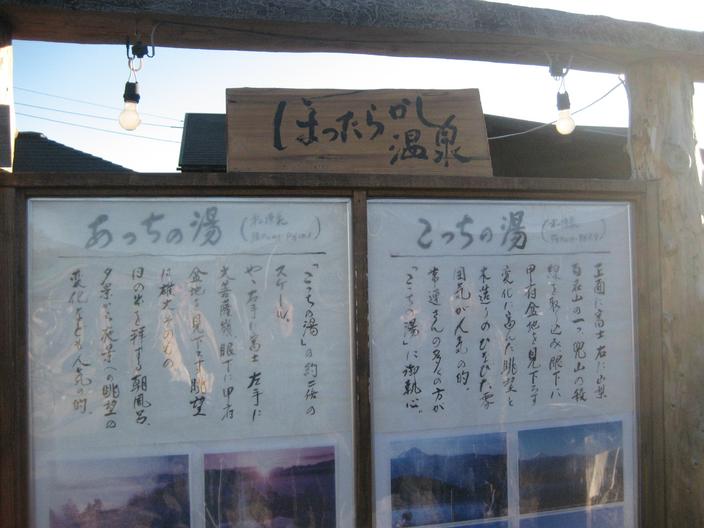 ほったらかし
温泉
あっちの湯
「こっちの湯」の約二倍の
スケール。
やゝ右手に富士 左手に
大菩薩嶺 眼下に甲府
盆地を見下ろす眺望
は雄大そのもの
日の出を拝する朝風呂、
夕景から夜景への眺望の
変化なども人気の的。
こっちの湯
正面に富士 右に山梨
百名山の一つ 兜山の稜
線を取り込み 眼下に
甲府盆地を見下ろす
変化に富んだ眺望と
木造りのひなびた雰
囲気が人気の的。
常連さんの多くの方が
「こっちの湯」に御執心。